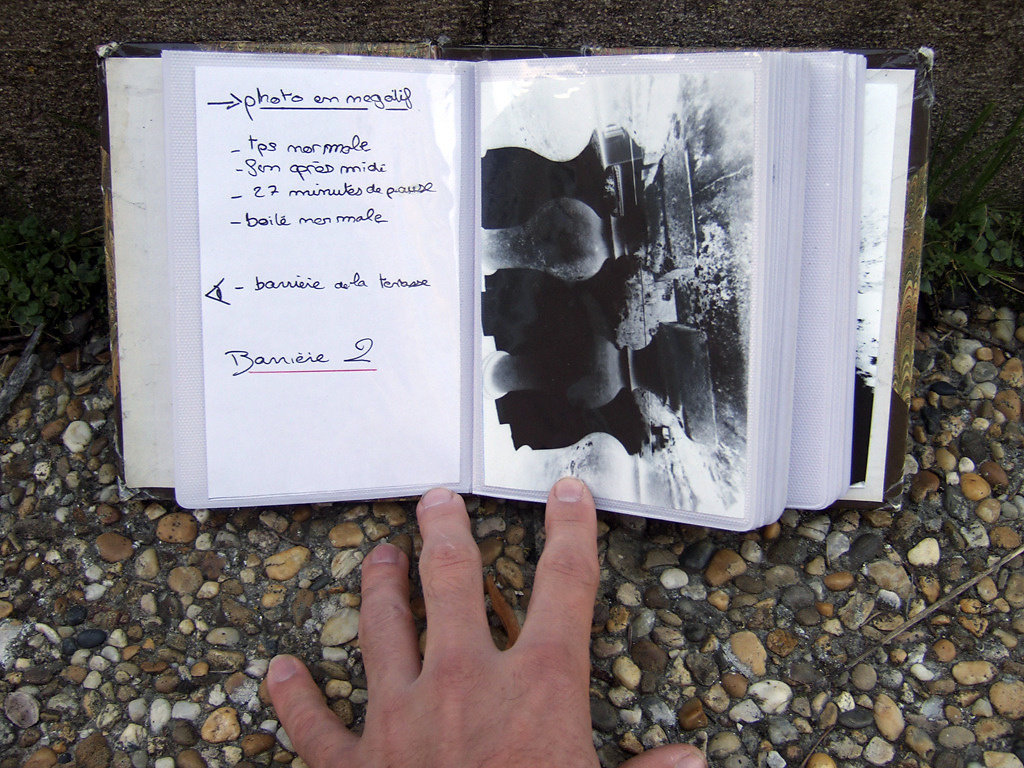 → photo en negatif
- tps normale
- 5em après midi
- 27 minutes de pause
- boité normale
- barrière de la terrasse
Barrière 2